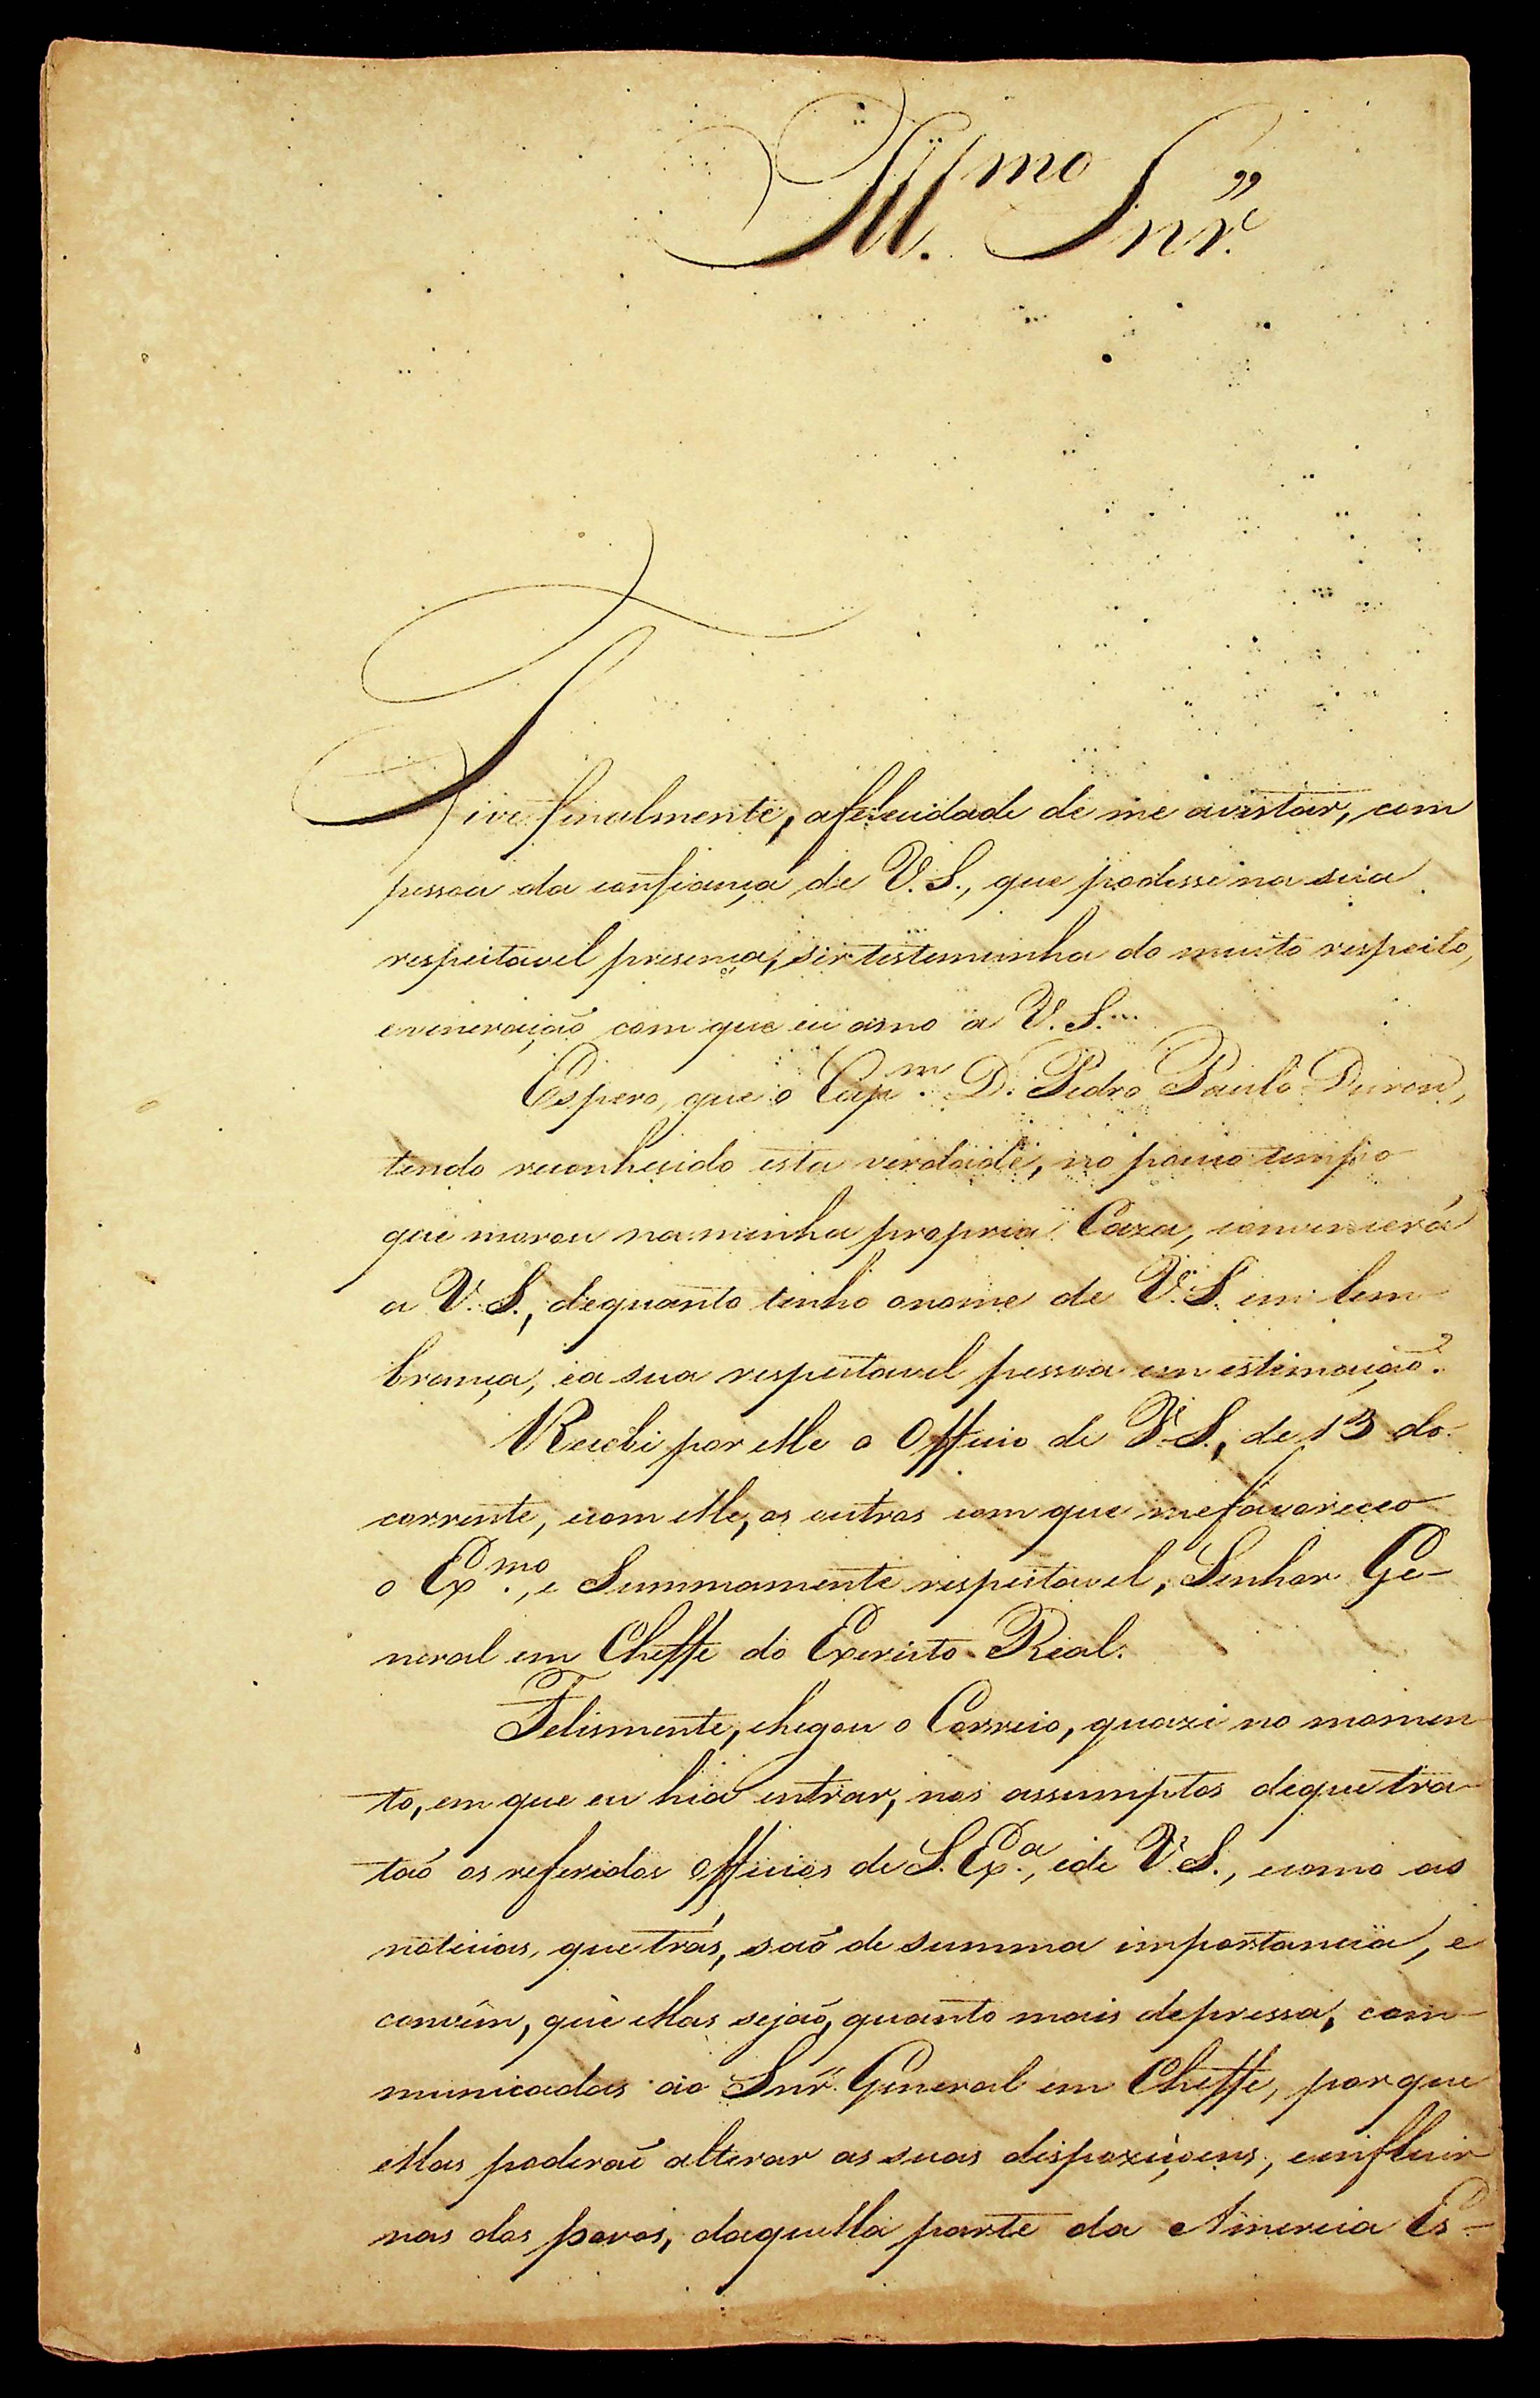 Ill.mo Snr.
Tive finalmente, a felicidade de me avistar, com
pessoa da confiança de V. S., que podesse na sua
respeitavel presença, ser testemunha do muito respeito,
e veneração com que eu amo a V. S.
Espero, que o Cap.m D. Pedro Paulo Duron,
tendo reconhecido esta verdade, no pouco tempo
que morou na minha propria Caza, convencerá
a V. S., de quanto tenho o nome de V. S. em lem
brança, e a sua respeitavel pessoa em estimação.
Recebi por elle o Officio de V. S., de 13 do
corrente, e com elle, os outros com que me favoreceo
o Ex.mo, e Summamente respeitavel, Senhor Ge-
neral em Cheffe do Exercito Real.
Felismente, chegou o Correio, quazi no momen
to, em que eu hia entrar, nos assumptos de que tra
taõ os referidos officios de S. Ex.a, e de V. S., e como as
noticias, que trás, saõ de summa importancia, e
convêm, que ellas sejaõ, quanto mais depressa, com-
municadas ao Snr. General em Cheffe, porque
ellas poderaõ alterar as suas dispoziçoens, e influir
nas dos povos, daquella parte da America Es-